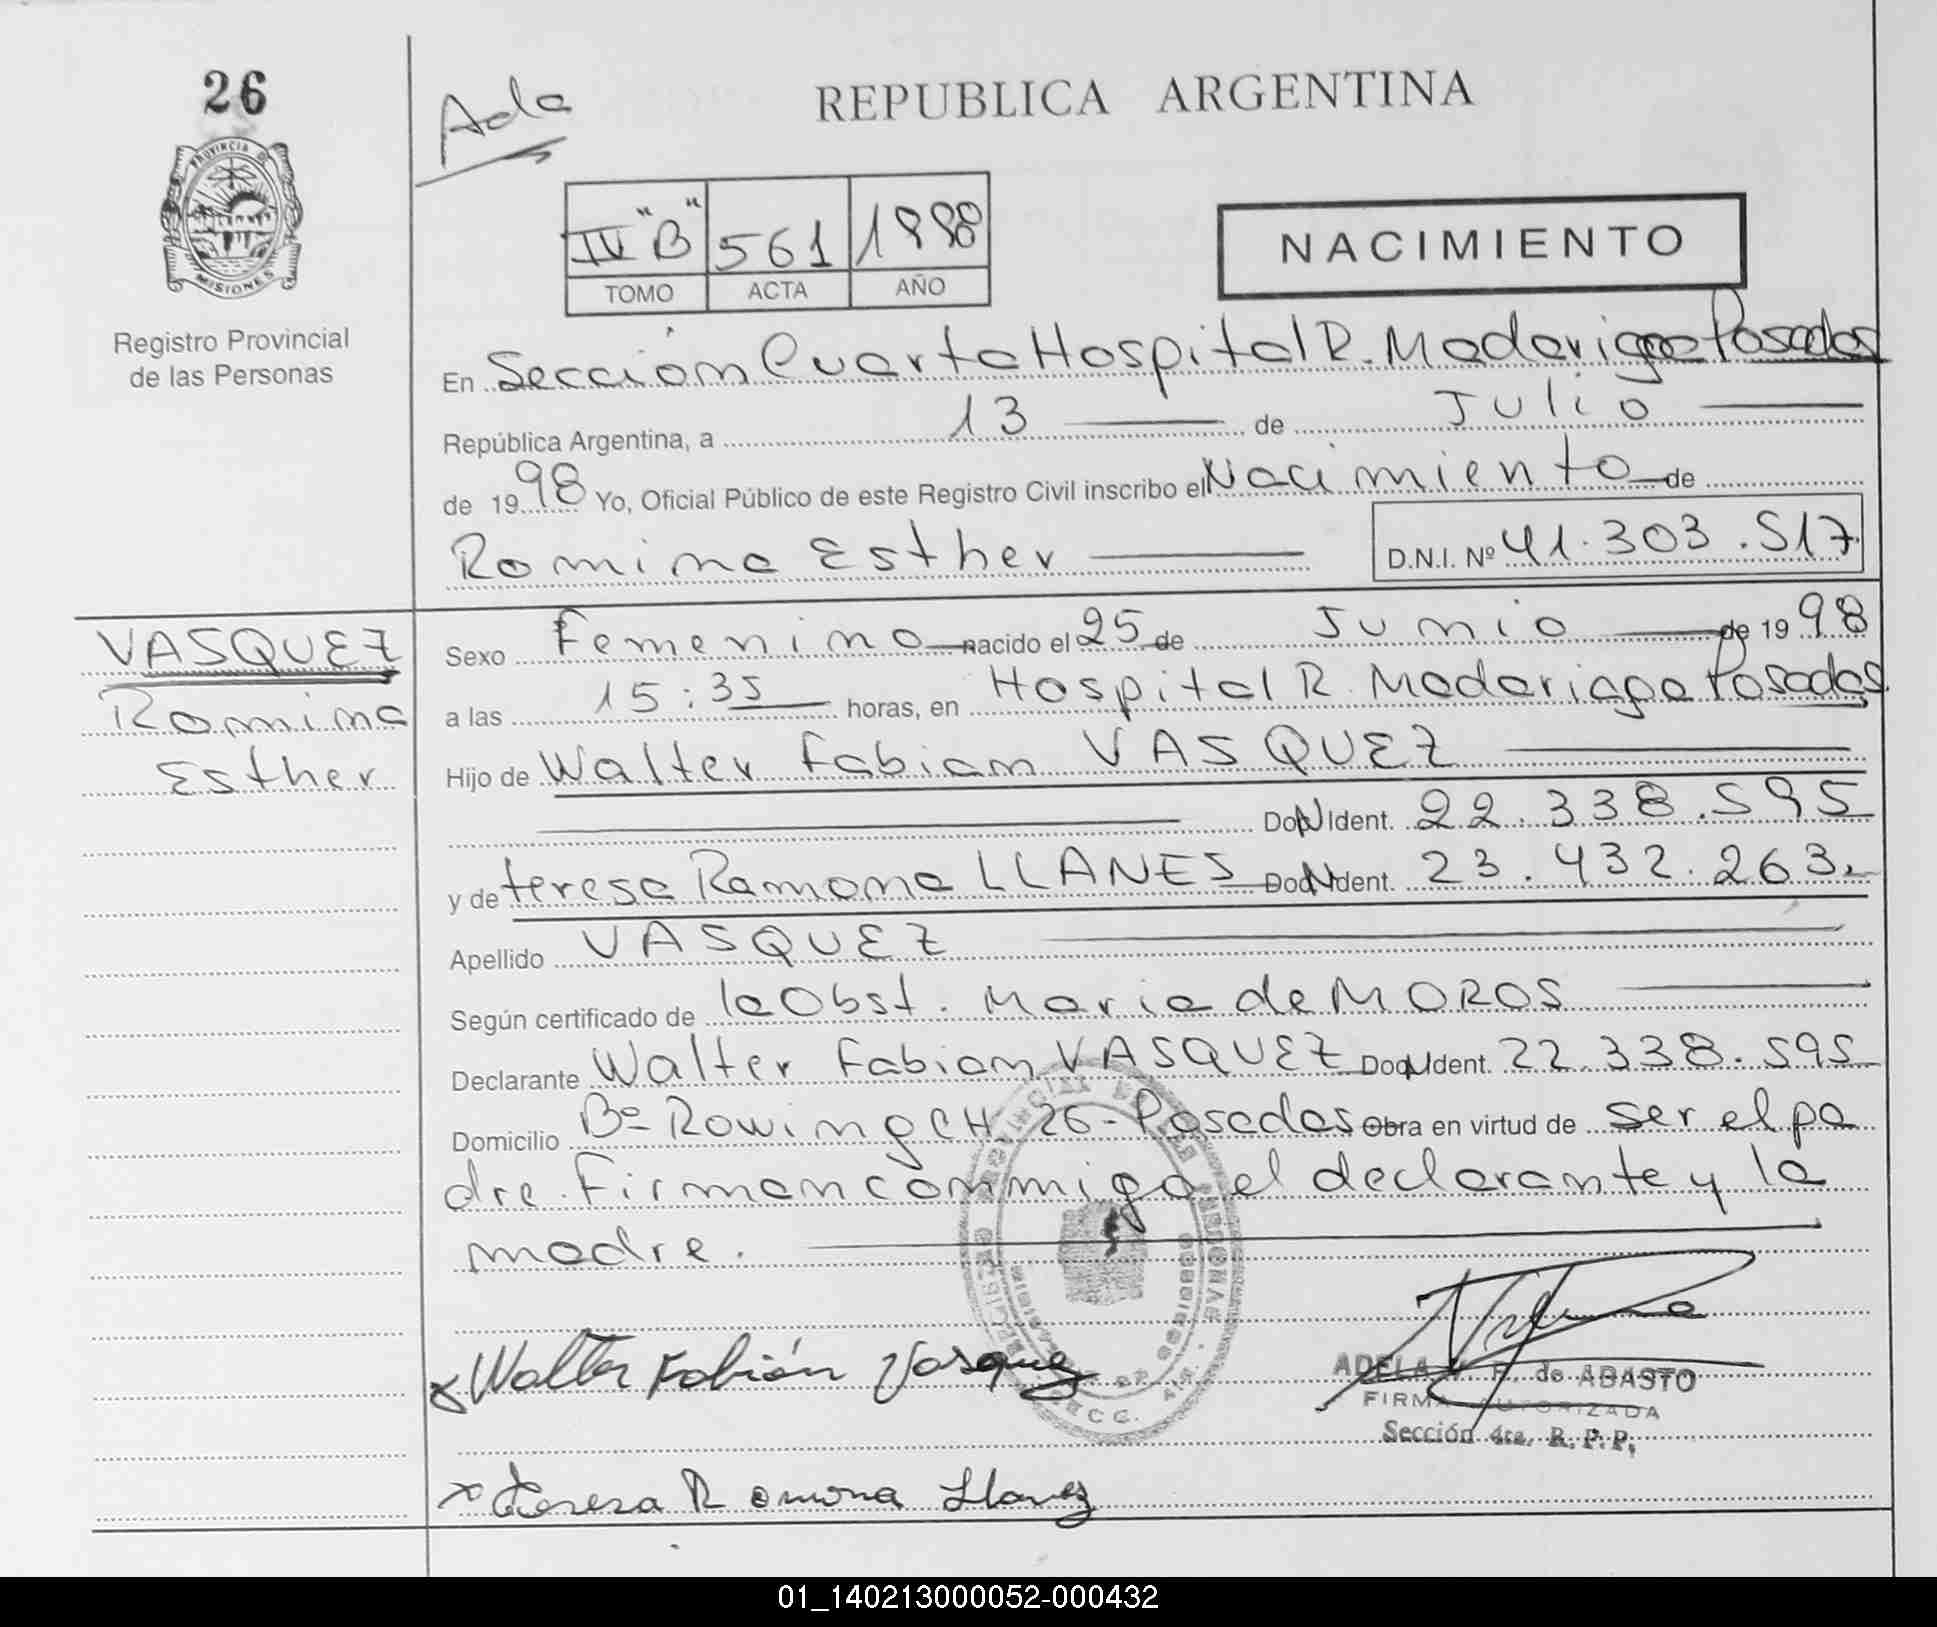 26
Ada
REPUBLICA ARGENTINA
PROVINCIA DE
MISIONES
Registro Provincial
de las Personas
IV "B" 561 1998
TOMO ACTA AÑO
NACIMIENTO
En Sección Cuarta Hospital R. Madariaga Posadas
República Argentina, a 13 de Julio
de 1998 Yo, Oficial Público de este Registro Civil inscribo el Nacimiento de
Romina Esther D.N.I. Nº 41.303.517
VASQUEZ
Romina
Esther
Sexo Femenino nacido el 25 de Junio de 1998
a las 15:35 horas, en Hospital R. Madariaga Posadas
Hijo de Walter Fabian VASQUEZ
Doc. Ident. 22.338.595
y de Teresa Ramona LLANES Doc. Ident. 23.432.263
Apellido VASQUEZ
Según certificado de la Obst. Maria de MOROS
Declarante Walter Fabian VASQUEZ Doc. Ident. 22.338.595
Domicilio Bº Rowing CH 26 - Posadas Obra en virtud de ser el pa
dre. Firman conmigo el declarante y la
madre.
x Walter Fabián Vasquez
ADELA de ABASTO
FIRMA AUTORIZADA
Sección 4ta. R. P. P.
x Teresa Ramona Llanez
01_140213000052-000432